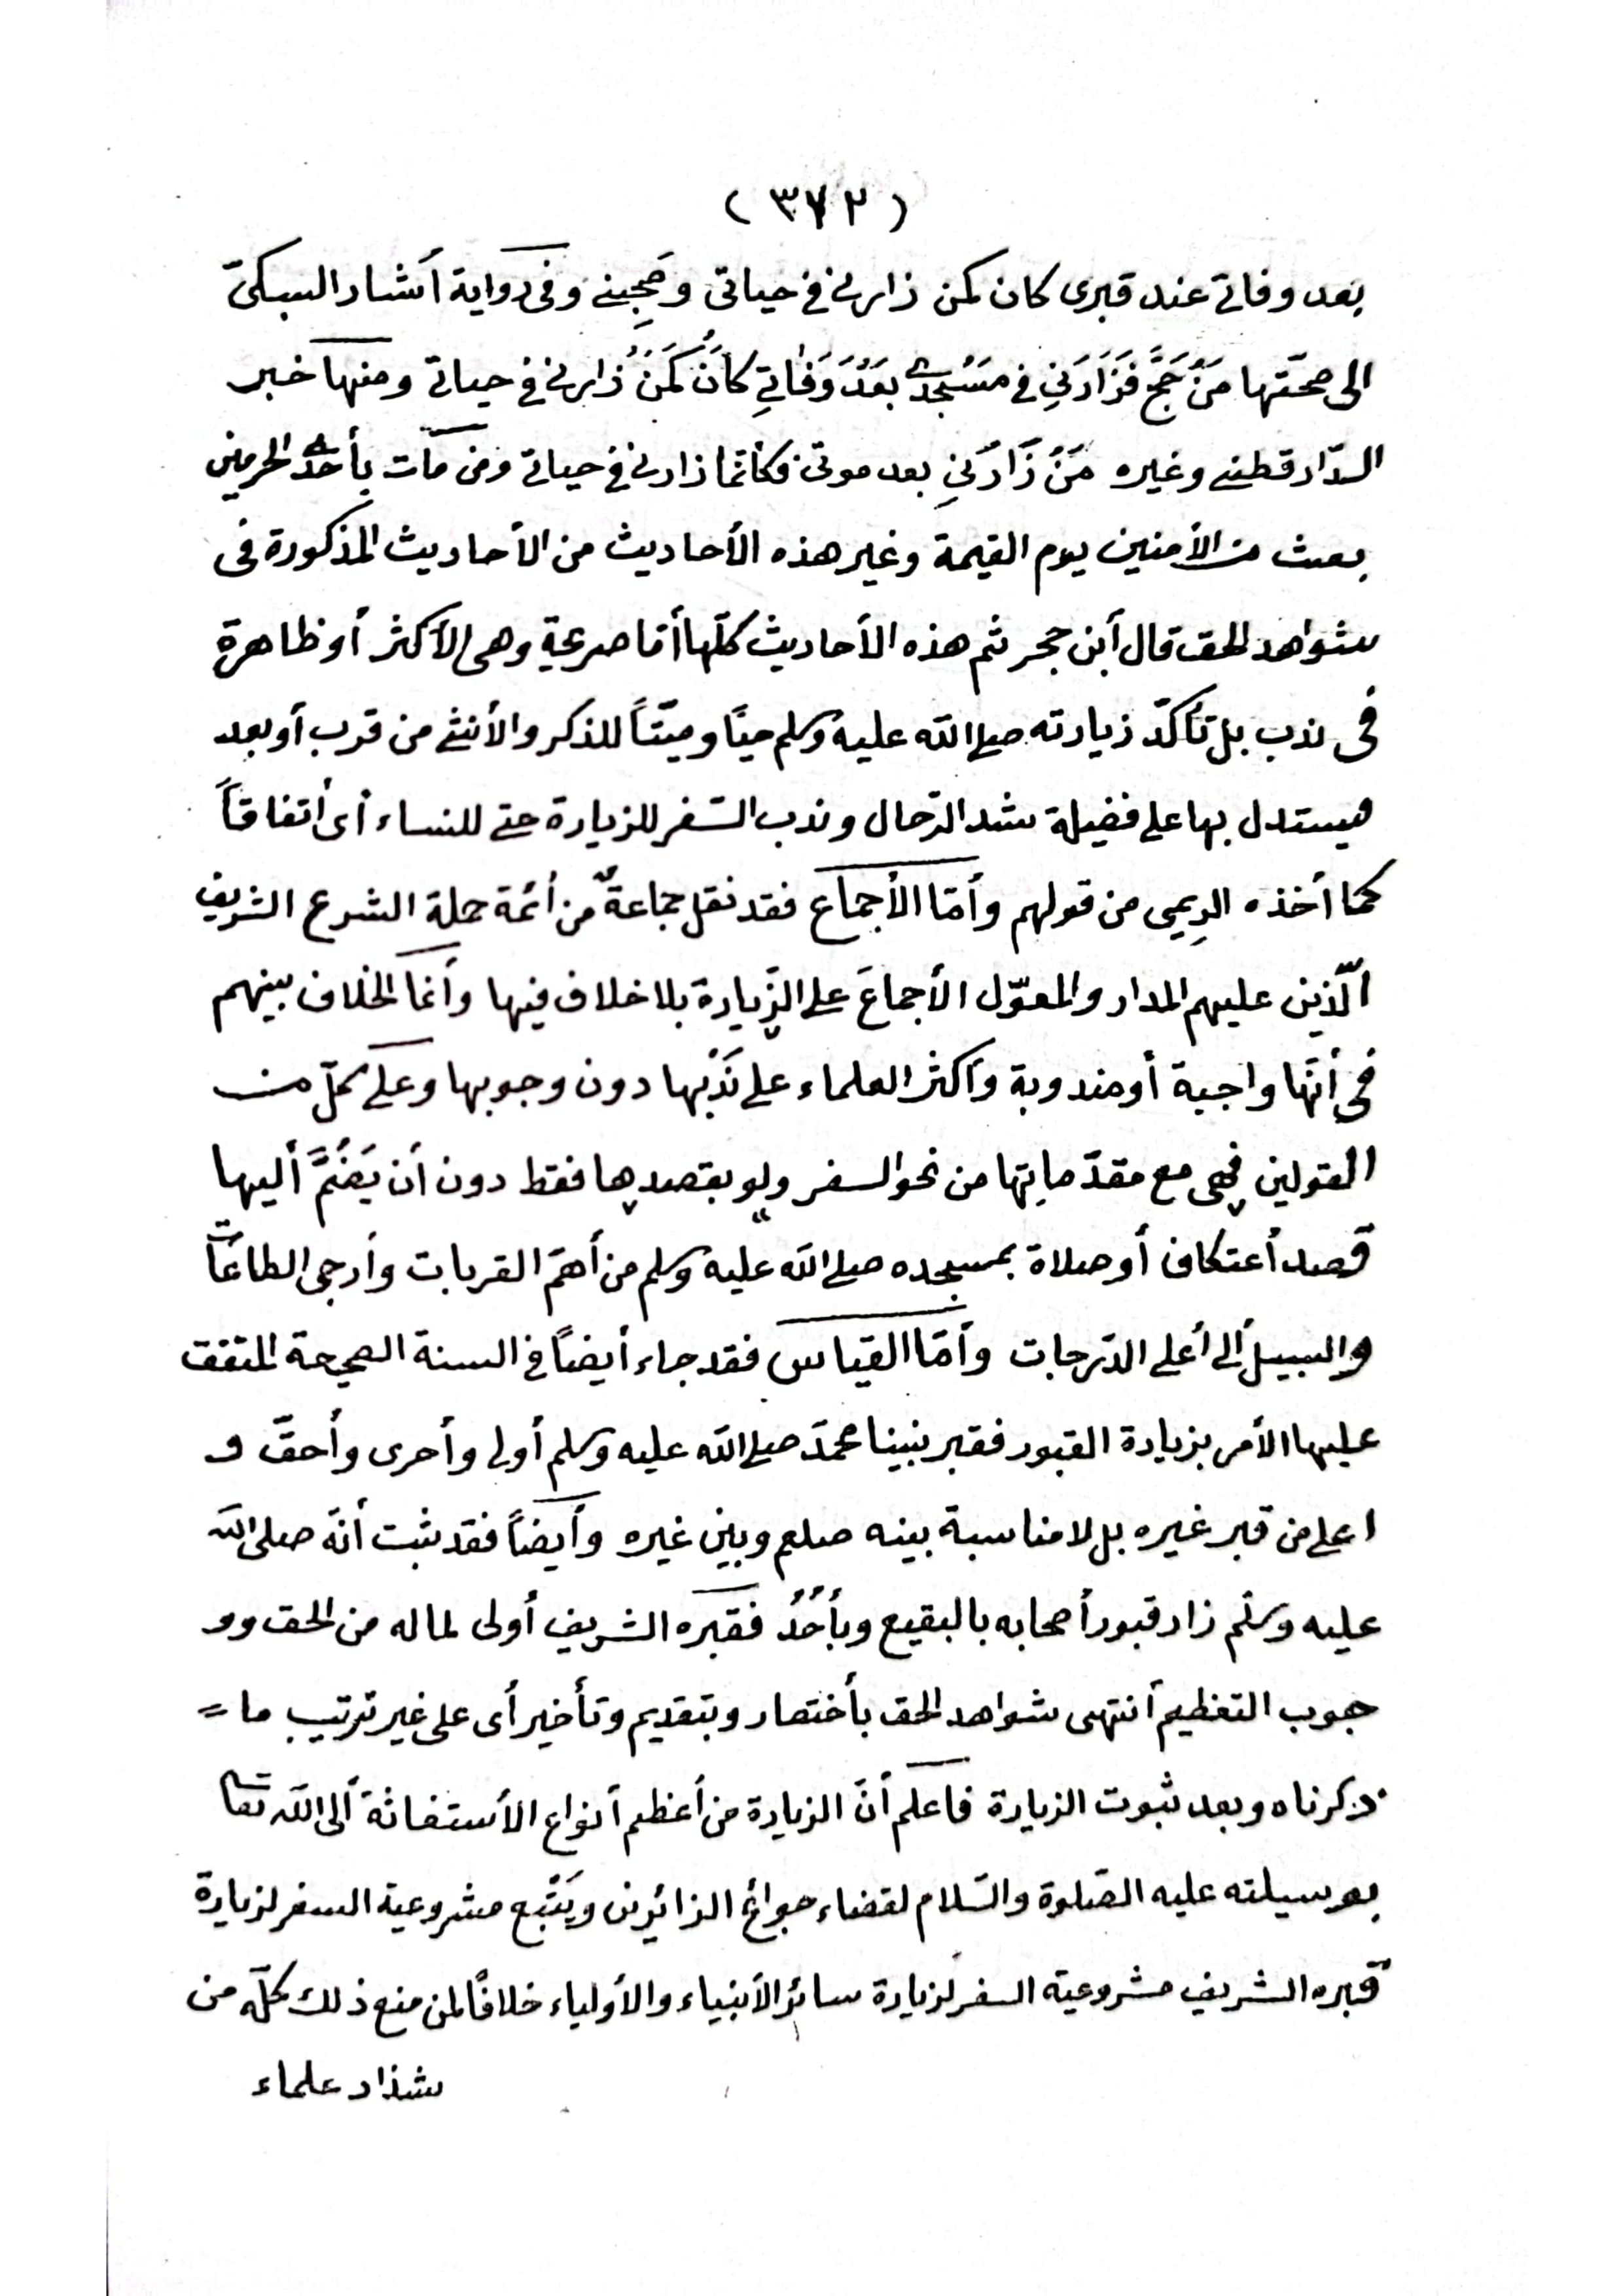 (٣٧٢)
بعد وفاتي عند قبرى كان كمن زارني في حياتي وصَحِبني وفى رواية أشار السبكىّ
الى صحّتها مَنْ حَجَّ فَزَارَنِي في مَسْجِدِي بَعْدَ وَفَاتِي كَانَ كَمَنْ زارني في حياتي ومنها خبر
الدّارقطني وغيره مَنْ زَارَنِي بعد موتى فكأنما زارني في حياتي ومن مات بأحد الحرمين
بعث من الأمنين يوم القيمة وغير هذه الأحاديث من الأحاديث المذكورة فى
شواهد الحق قال أبن حجر ثم هذه الأحاديث كلّها أمّا صريحة وهى الأكثر أو ظاهرة
فى ندب بل تأكّد زيارته صلى الله عليه وسلم حيّاً وميّتاً للذكر والأنثى من قرب أو بعد
فيستدل بها على فضيلة شد الرّحال وندب السّفر للزيارة حتى للنساء أى أتفاقاً
كما أخذه الريمى من قولهم وأمّا الأجماع فقد نقل جماعةٌ من أئمة حملة الشرع الشريف
الّذين عليهم المدار والمعوّل الأجماعَ على الزّيارة بلا خلاف فيها وأنما الخلاف بينهم
فى أنّها واجبة أو مندوبة وأكثر العلماء على نَدْبها دون وجوبها وعلى كلّ من
القولين فهى مع مقدّماتها من نحو السفر ولو بقصدها فقط دون أن يَضُمَّ أليها
قصد أعتكاف أو صلاة بمسجده صلى الله عليه وسلم من أهمّ القربات وأرجى الطاعات
والسبيل ألى أعلى الدّرجات وأمّا القياس فقد جاء أيضاً في السنة الصحيحة المتفق
عليها الأمر بزيارة القبور فقبر نبينا محمّد صلى الله عليه وسلم أولى وأحرى وأحقّ و
اعلى من قبر غيره بل لا مناسبة بينه صلعم وبين غيره وأيضاً فقد ثبت أنّه صلى الله
عليه وسلّم زار قبور أصحابه بالبقيع وبأُحُدُ فقبره الشريف أولى لما له من الحق وو
جوب التعظيم أنتهى شواهد الحق بأختصار وبتقديم وتأخير أى على غير ترتيب ما =
ذكرناه وبعد ثبوت الزيارة فاعلم أنّ الزيارة من أعظم أنواع الأستغاثة ألى الله تعا
بوسيلته عليه الصّلوة والسّلام لقضاء حوائج الزائرين ويَتْبع مشروعية السفر لزيارة
قبره الشريف مشروعية السفر لزيارة سائر الأنبياء والأولياء خلافاً لمن منع ذلك كلّه من
شذاد علماء